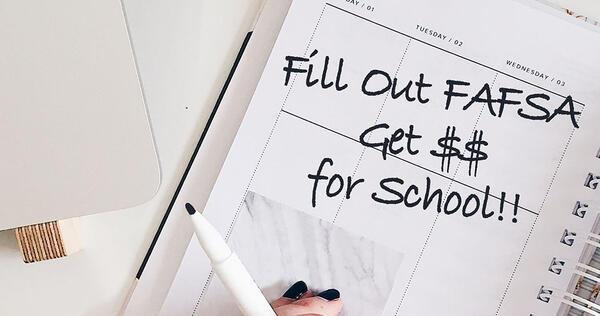 DAY / 01
TUESDAY / 02
WEDNESDAY / 03
Fill Out FAFSA
Get $$
for School!!